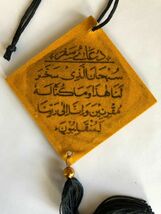 دعائے سفر
سبحان الذی سخر
لنا هذا وما کنا له
مقرنین وانا الی ربنا
لمنقلبون